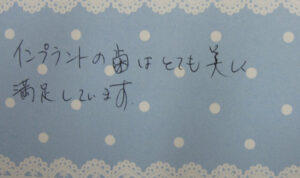 インプラントの歯はとても美しく
満足しています。